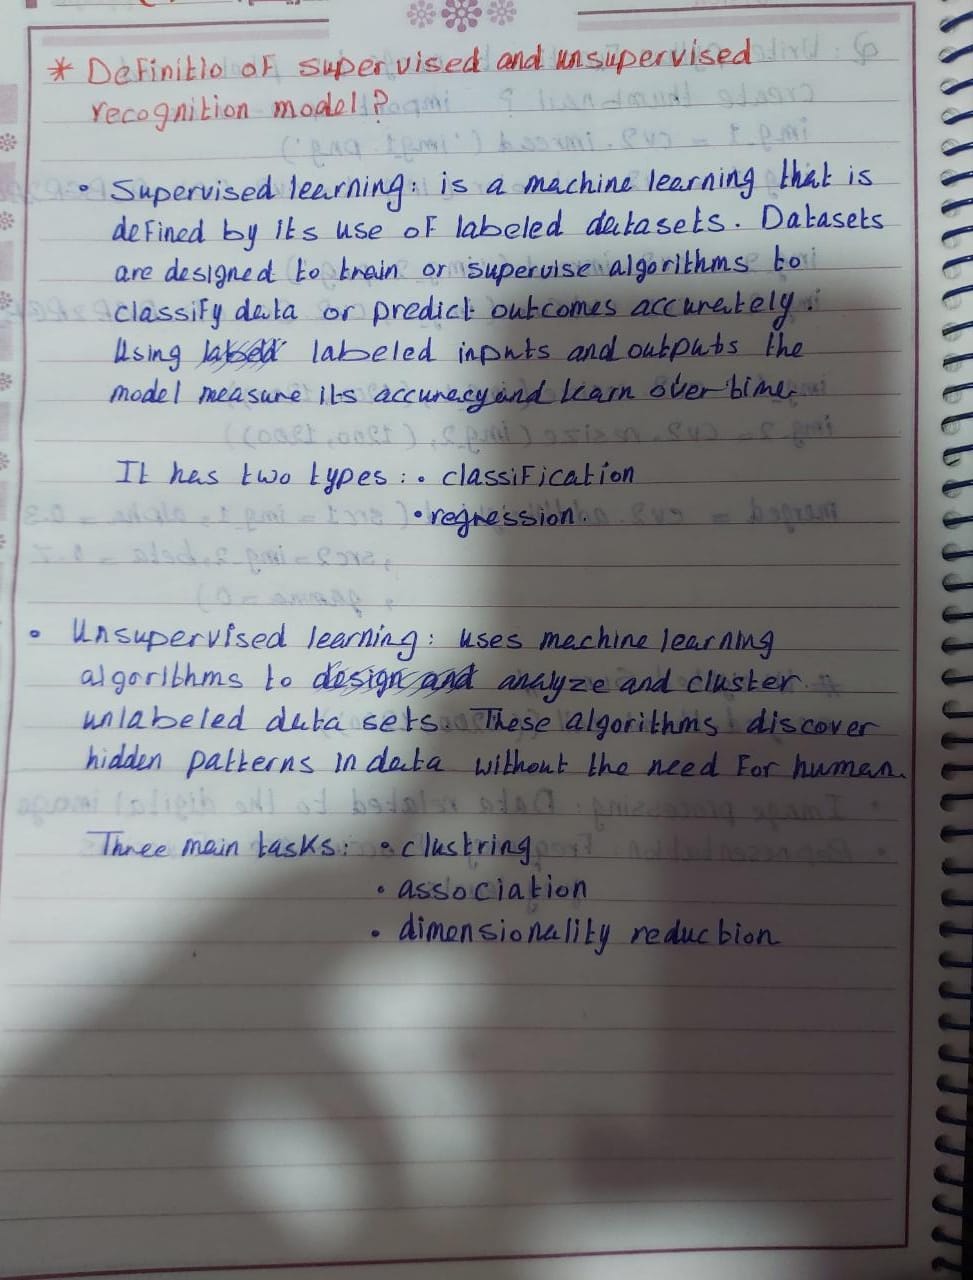 * Definitio of supervised and unsupervised
recognition model?
• Supervised learning: is a machine learning that is
defined by its use of labeled datasets. Datasets
are designed to train or supervise algorithms to
classify data or predict outcomes accurately.
Using labeled inputs and outputs the
model measure its accuracy and learn over time.
It has two types: • classification
• regression.
• Unsupervised learning: uses machine learning
algorithms to design and analyze and cluster
unlabeled data sets. These algorithms discover
hidden patterns in data without the need for human.
Three main tasks: • clustring
• association
• dimensionality reduction